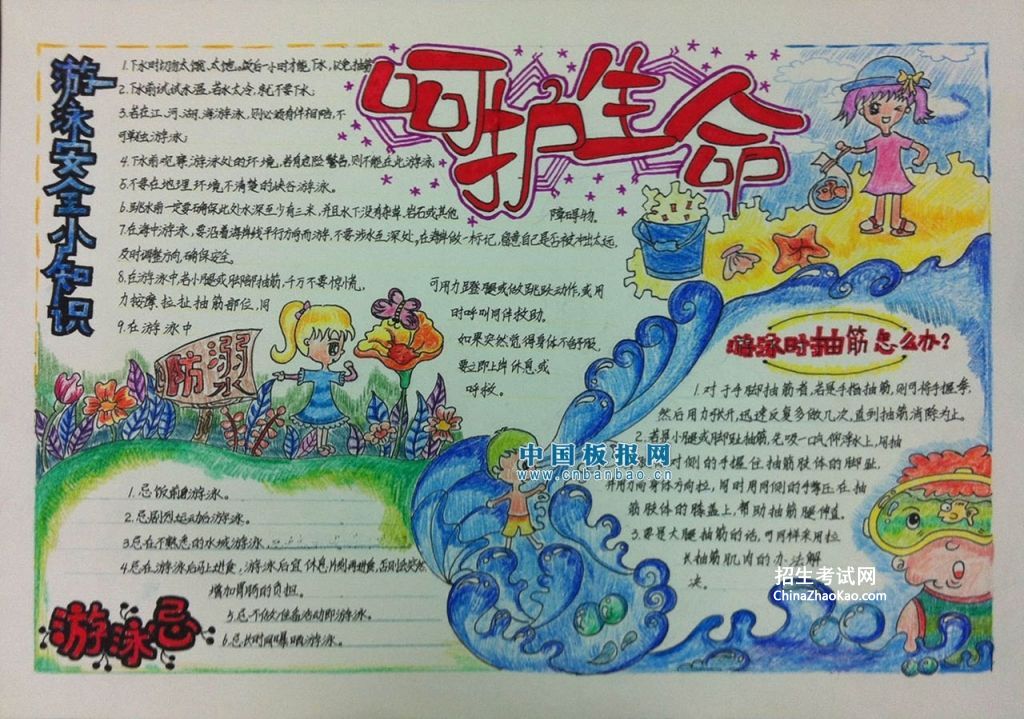 呵护生命
游泳安全小知识
1.下水时切勿太饿、太饱。饭后一小时才能下水,以免抽筋
2.下水前试试水温,若水太冷,就不要下水;
3.若在江、河、湖、海游泳,则必须有伴相陪,不
可单独游泳;
4.下水前观察游泳处的环境,若有危险警告,则不能在此游泳
5.不要在地理环境不清楚的峡谷游泳。
6.跳水前一定要确保此处水深至少有三米,并且水下没有杂草、岩石或其他 障碍物
7.在海中游泳,要沿着海岸线平行方向而游,不要涉水至深处,在海岸做一标记,留意自己是否被冲出太远,
及时调整方向,确保安全。
8.在游泳中,若小腿或脚部抽筋,千万不要惊慌, 可用力蹬腿或做跳跃动作,或用
力按摩、拉扯抽筋部位,同 时呼叫同伴救助。
9.在游泳中 如果突然觉得身体不舒服,
要立即上岸休息或
呼救。
防溺
游泳时抽筋怎么办?
1.对于手脚抽筋者,若是手指抽筋,则可将手握拳,
然后用力张开,迅速反复多做几次,直到抽筋消除为止。
2.若是小腿或脚趾抽筋,先吸一口气仰浮水上,用抽
对侧的手握住抽筋肢体的脚趾,
并用力向身体方向拉,同时用同侧的手掌压在抽
筋肢体的膝盖上,帮助抽筋腿伸直。
3.要是大腿抽筋的话,可同样采用拉
长抽筋肌肉的办法解
决。
游泳忌
1.忌饭前后游泳。
2.忌剧烈运动后游泳。
3.忌在不熟悉的水域游泳。
4.忌在游泳后马上进食,游泳后宜休息片刻再进食,否则会突然
增加胃肠的负担。
5.忌不做准备活动即游泳。
6.忌长时间曝晒游泳。
中国板报网
www.cnbanbao.cn
招生考试网
ChinaZhaoKao.com